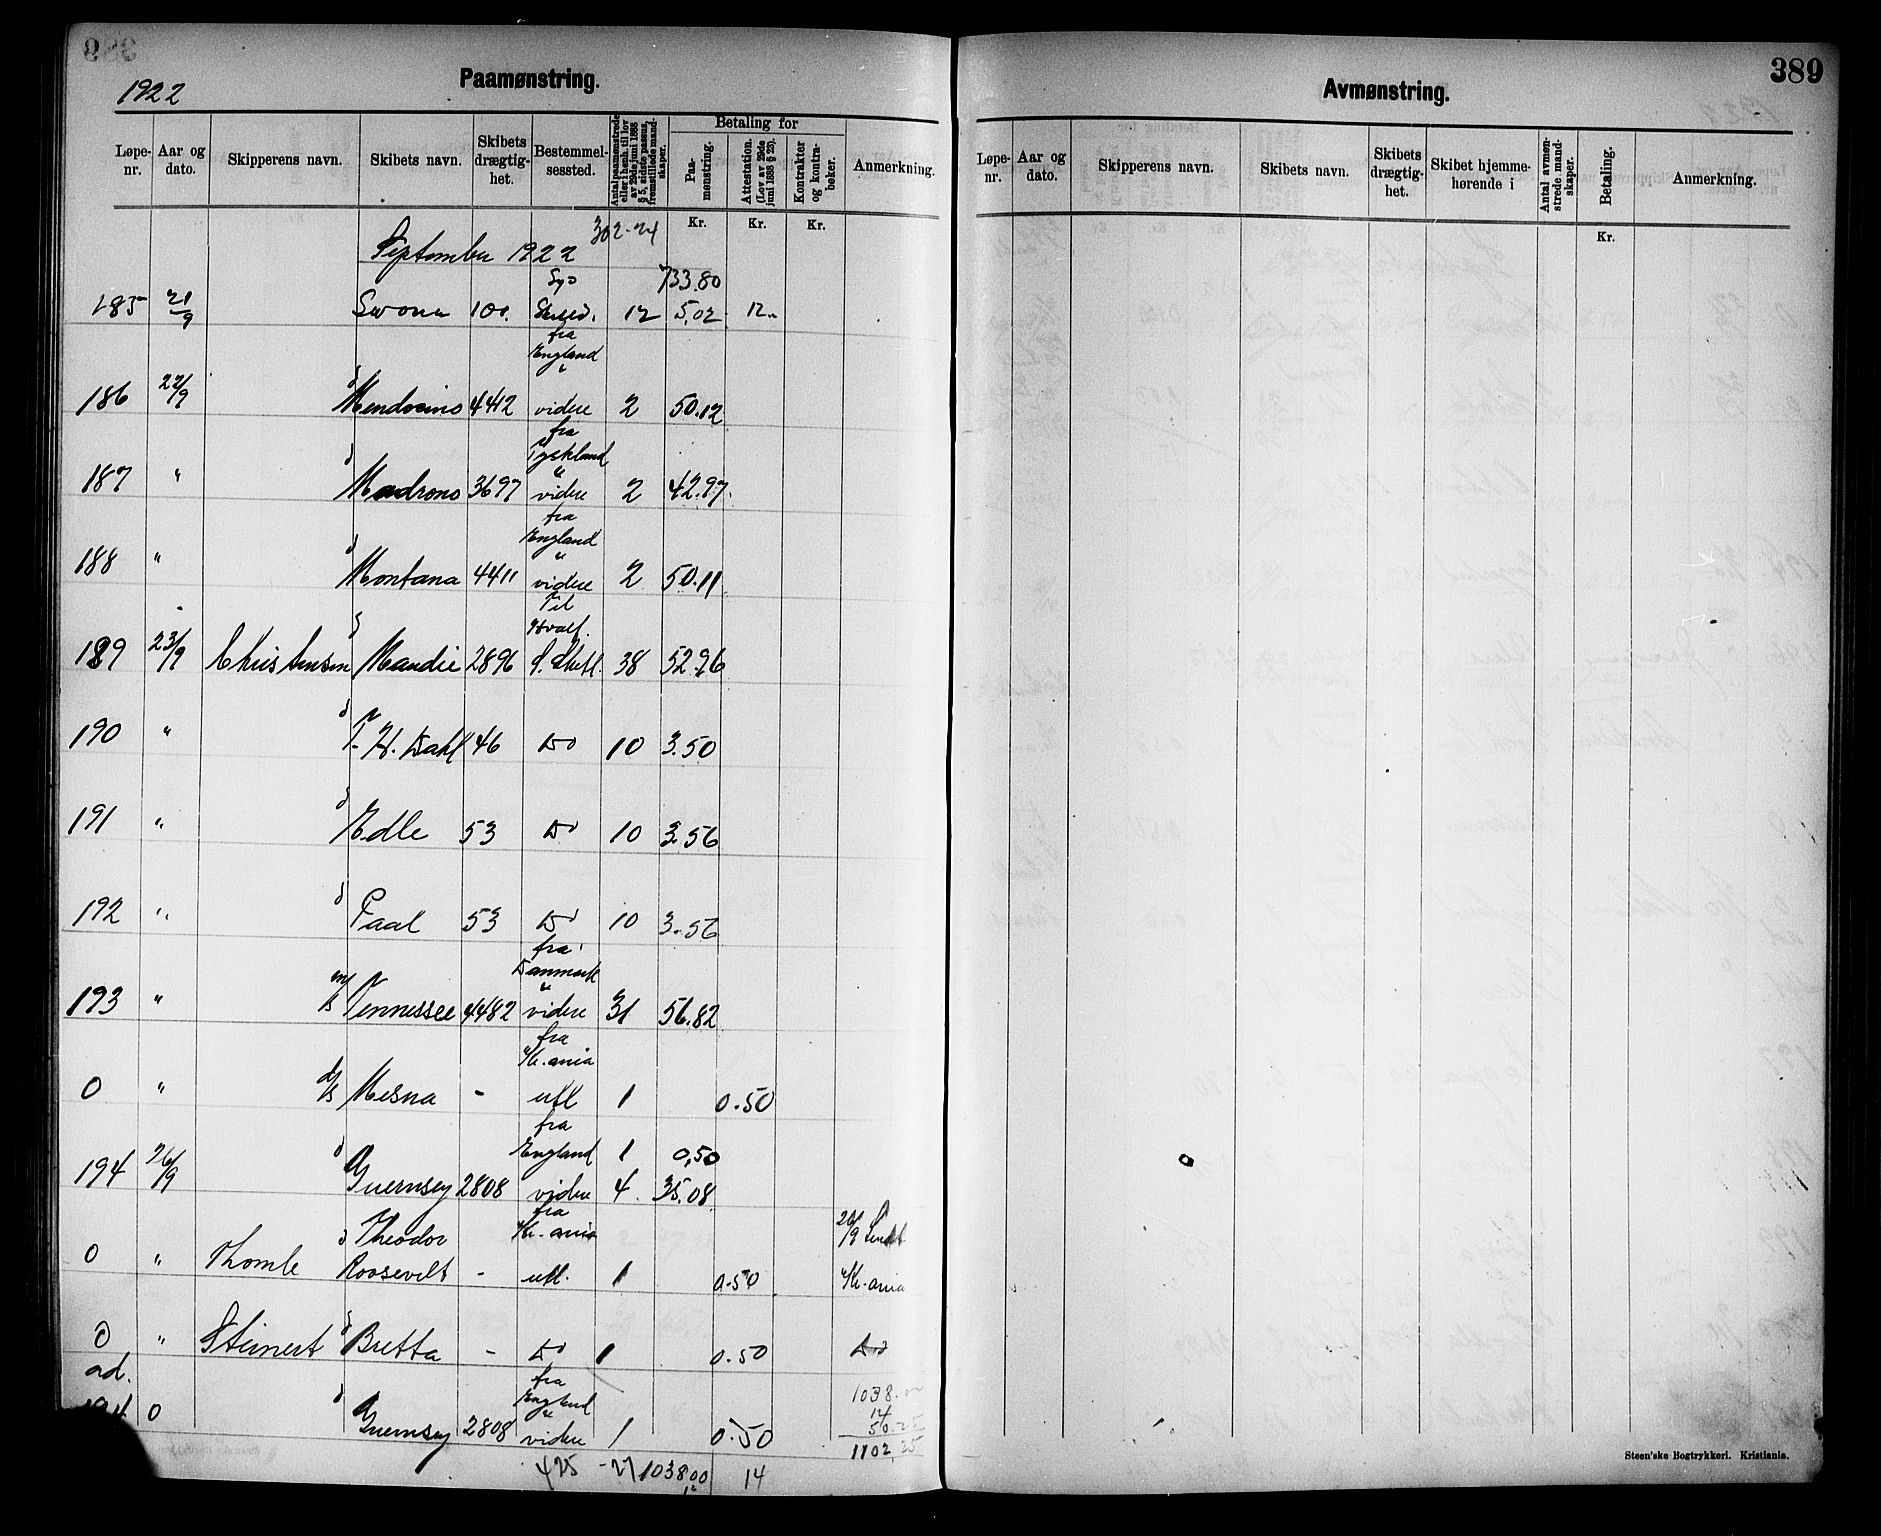 1922
Paamønstring.
Løpe-nr.
Aar og dato.
Skipperens navn.
Skibets navn.
Skibets drægtig-het.
Bestemmel-sessted.
Antal paamønstrede eller i henh. til lov av 29de juni 1888 § 5, sidste passus, fremstillede mand-skaper.
Betaling for
Paa-mønstring.
Attestation. (Lov av 29de juni 1888 § 23).
Kontrakter og kontra-bøker.
Anmerkning.
Kr. Kr. Kr.
302-24
September 1922
733.80
185 21/9 Svona 100. 12 5,02 12
fra England
186 22/9 d Mendocino 4412 " videre 2 50.12
fra Tyskland
187 " d Madrono 3697 " videre 2 42.97
fra England
188 " d Montana 4411 " videre 2 50.11
Til Hvalf.
189 23/9 Christensen Maudie 2896 S. Shetl. 38 52.96
190 " d T. H. Dahl 46 Do 10 3.50
191 " d Edle 53 Do 10 3.56
192 " d Paal 53 Do 10 3.56
fra Danmark
193 " m/s Tennessee 4482 " videre 31 56.82
fra Kr.ania
0 " d/s Mesna - utl 1 0.50
fra England 1 0,50
194 26/9 d Guernsey 2808 videre 4 35.08
fra Kr.ania
0 " Thomle d Theodor Roosevelt - utl. 1 0.50 26/9 Sendt Kr.ania
0 " Steinert Bretta - Do 1 0.50 Do
ad. fra England
194 0 d Guernsey 2808 " videre 1 0.50
1038
14
50.25
1102,25
425 -27 1038 00 14
389
Avmønstring.
Løpe-nr.
Aar og dato.
Skipperens navn.
Skibets navn.
Skibets drægtig-het.
Skibet hjemme-hørende i
Antal avmøn-strede mand-skaper.
Betaling.
Anmerkning.
Kr.
Steen'ske Bogtrykkeri. Kristiania.